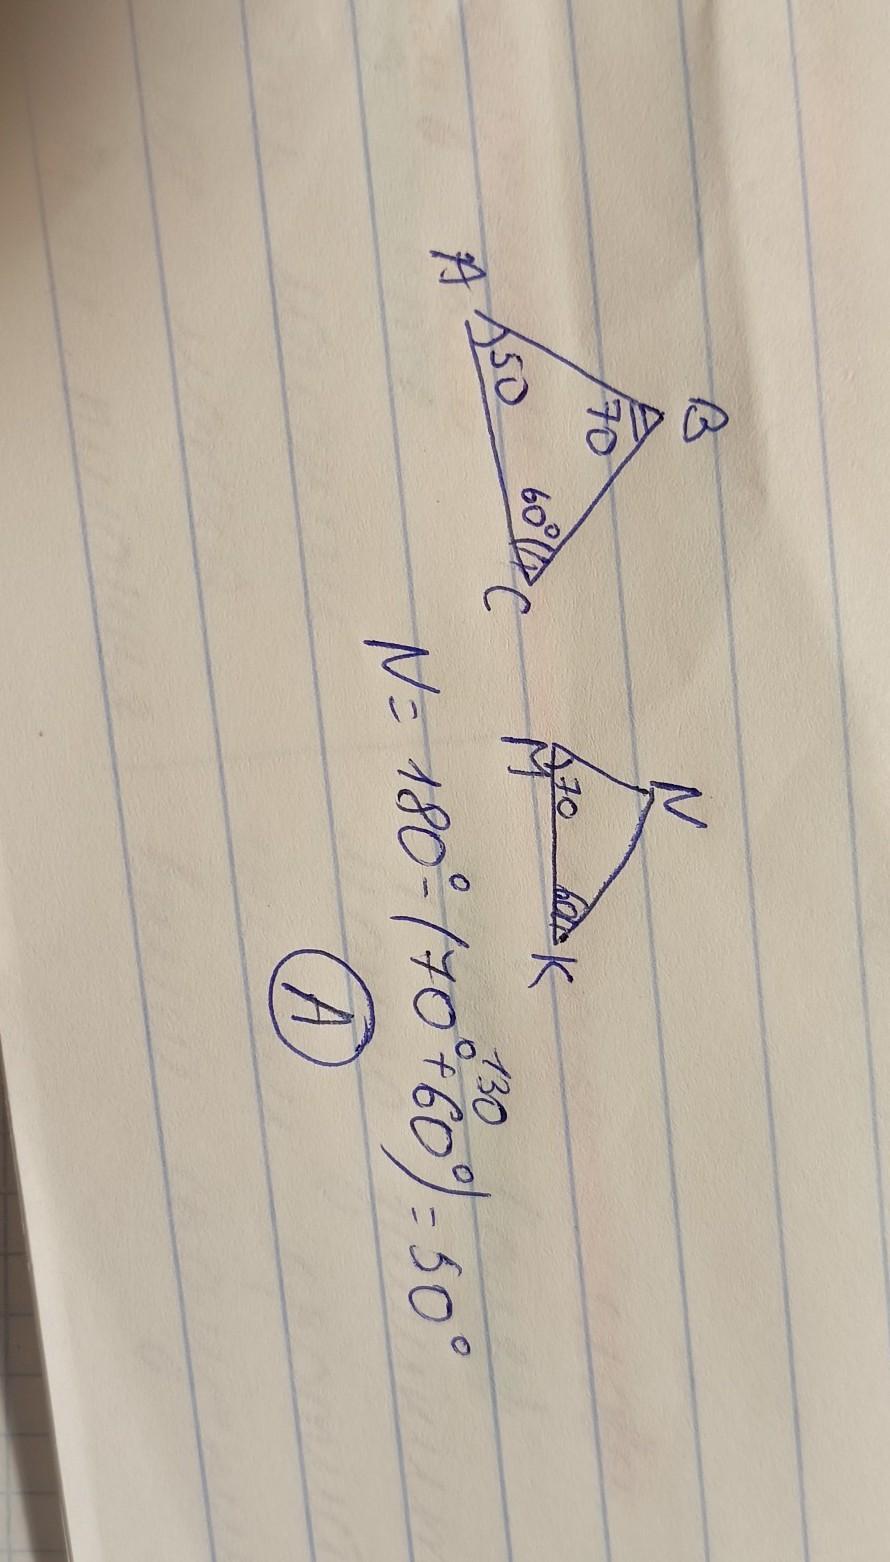 B
N
A 50 70 60° C
M 70 60 K
130
N = 180° - (70° + 60°) = 50°
A